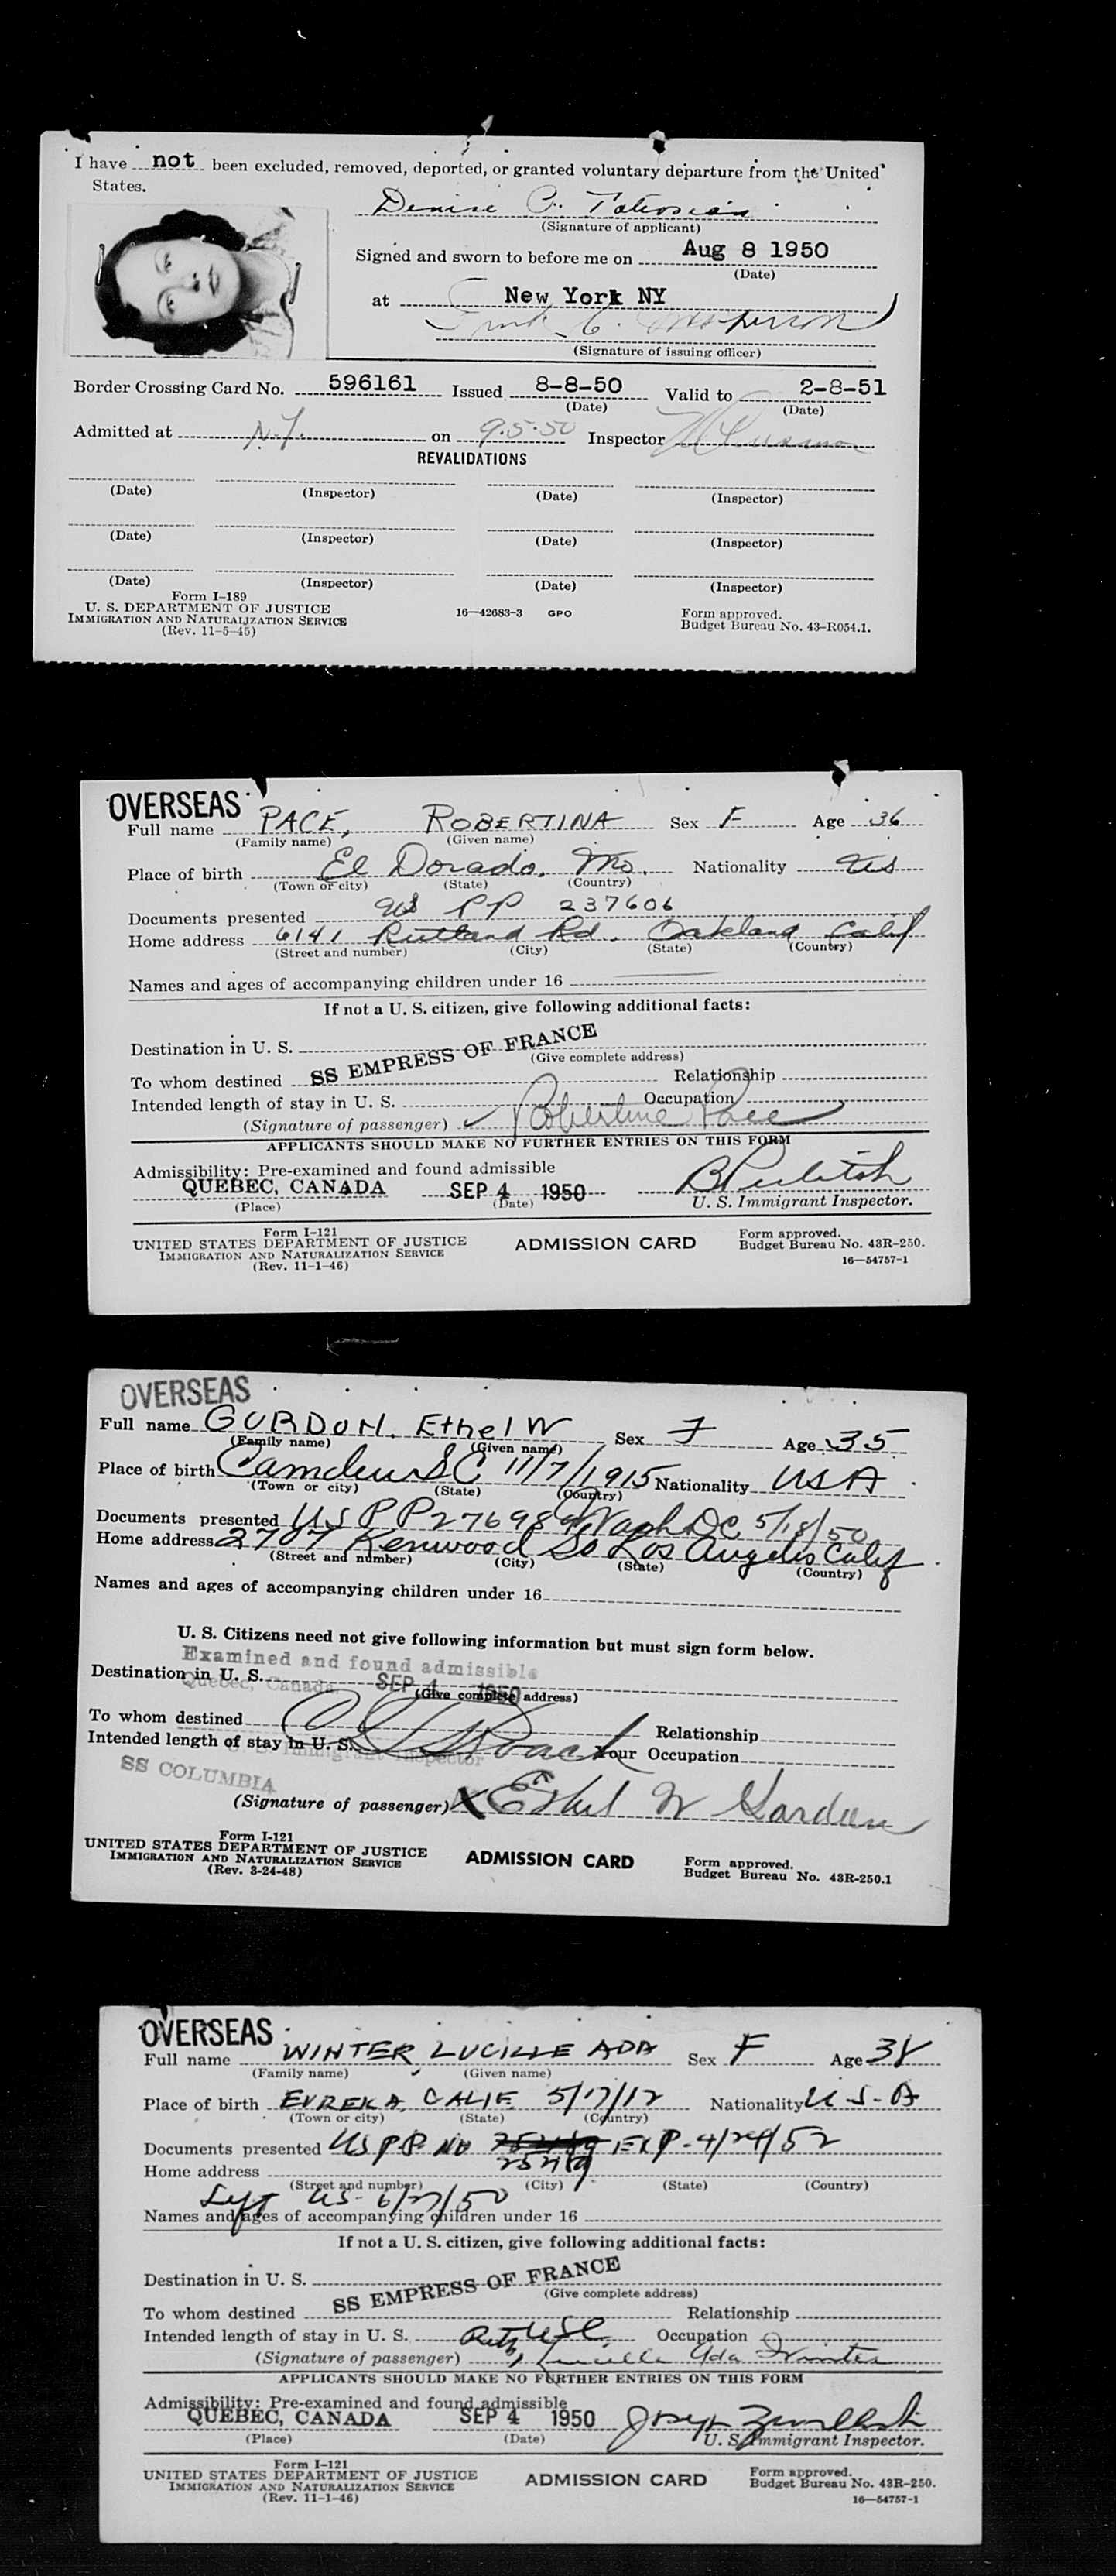 I have not been excluded, removed, deported, or granted voluntary departure from the United
States.
Denise
(Signature of applicant)
Signed and sworn to before me on Aug 8 1950
(Date)
at New York NY
(Signature of issuing officer)
Border Crossing Card No. 596161 Issued 8-8-50 Valid to 2-8-51
(Date) (Date)
Admitted at N.Y. on 9.5.50 Inspector
REVALIDATIONS
(Date) (Inspector) (Date) (Inspector)
(Date) (Inspector) (Date) (Inspector)
(Date) (Inspector) (Date) (Inspector)
Form I-189
U. S. DEPARTMENT OF JUSTICE
IMMIGRATION AND NATURALIZATION SERVICE
(Rev. 11-5-45)
16—42683-3 GPO
Form approved.
Budget Bureau No. 43-R054.1.
OVERSEAS
Full name PACE, ROBERTINA Sex F Age 36
(Family name) (Given name)
Place of birth El Dorado, Mo. Nationality US
(Town or city) (State) (Country)
Documents presented US PP 237606
Home address 6141 Rutland Rd. Oakland Calif
(Street and number) (City) (State) (Country)
Names and ages of accompanying children under 16
If not a U. S. citizen, give following additional facts:
Destination in U. S.
SS EMPRESS OF FRANCE
(Give complete address)
To whom destined Relationship
Intended length of stay in U. S. Occupation
(Signature of passenger) Robertine Pace
APPLICANTS SHOULD MAKE NO FURTHER ENTRIES ON THIS FORM
Admissibility: Pre-examined and found admissible
QUEBEC, CANADA SEP 4 1950
(Place) (Date) U. S. Immigrant Inspector.
Form I-121
UNITED STATES DEPARTMENT OF JUSTICE
IMMIGRATION AND NATURALIZATION SERVICE
(Rev. 11-1-46)
ADMISSION CARD
Form approved.
Budget Bureau No. 43R-250.
16—54757-1
OVERSEAS
Full name GURDON, Ethel W Sex F Age 35
(Family name) (Given name)
Place of birth Camden SC 11/7/1915 Nationality USA
(Town or city) (State) (Country)
Documents presented US PP 27698 Wash DC 5/18/50
Home address 2707 Kenwood So Los Angeles Calif
(Street and number) (City) (State) (Country)
Names and ages of accompanying children under 16
U. S. Citizens need not give following information but must sign form below.
Examined and found admissible
Destination in U. S.
Quebec, Canada SEP 4 1950
(Give complete address)
To whom destined Relationship
Intended length of stay in U. S. Your Occupation
Immigrant Inspector
SS COLUMBIA
(Signature of passenger) X Ethel W Gordon
Form I-121
UNITED STATES DEPARTMENT OF JUSTICE
IMMIGRATION AND NATURALIZATION SERVICE
(Rev. 3-24-48)
ADMISSION CARD
Form approved.
Budget Bureau No. 43R-250.1
OVERSEAS
Full name WINTER, LUCILLE ADA Sex F Age 38
(Family name) (Given name)
Place of birth EUREKA, CALIF. 5/17/12 Nationality U S. A
(Town or city) (State) (Country)
Documents presented US PP No EXP. 4/24/52
Home address
(Street and number) (City) (State) (Country)
Left US 6/27/50
Names and ages of accompanying children under 16
If not a U. S. citizen, give following additional facts:
Destination in U. S.
SS EMPRESS OF FRANCE
(Give complete address)
To whom destined Relationship
Intended length of stay in U. S. Occupation
(Signature of passenger) Lucille Ada Winter
APPLICANTS SHOULD MAKE NO FURTHER ENTRIES ON THIS FORM
Admissibility: Pre-examined and found admissible
QUEBEC, CANADA SEP 4 1950
(Place) (Date) U. S. Immigrant Inspector.
Form I-121
UNITED STATES DEPARTMENT OF JUSTICE
IMMIGRATION AND NATURALIZATION SERVICE
(Rev. 11-1-46)
ADMISSION CARD
Form approved.
Budget Bureau No. 43R-250.
16—54757-1